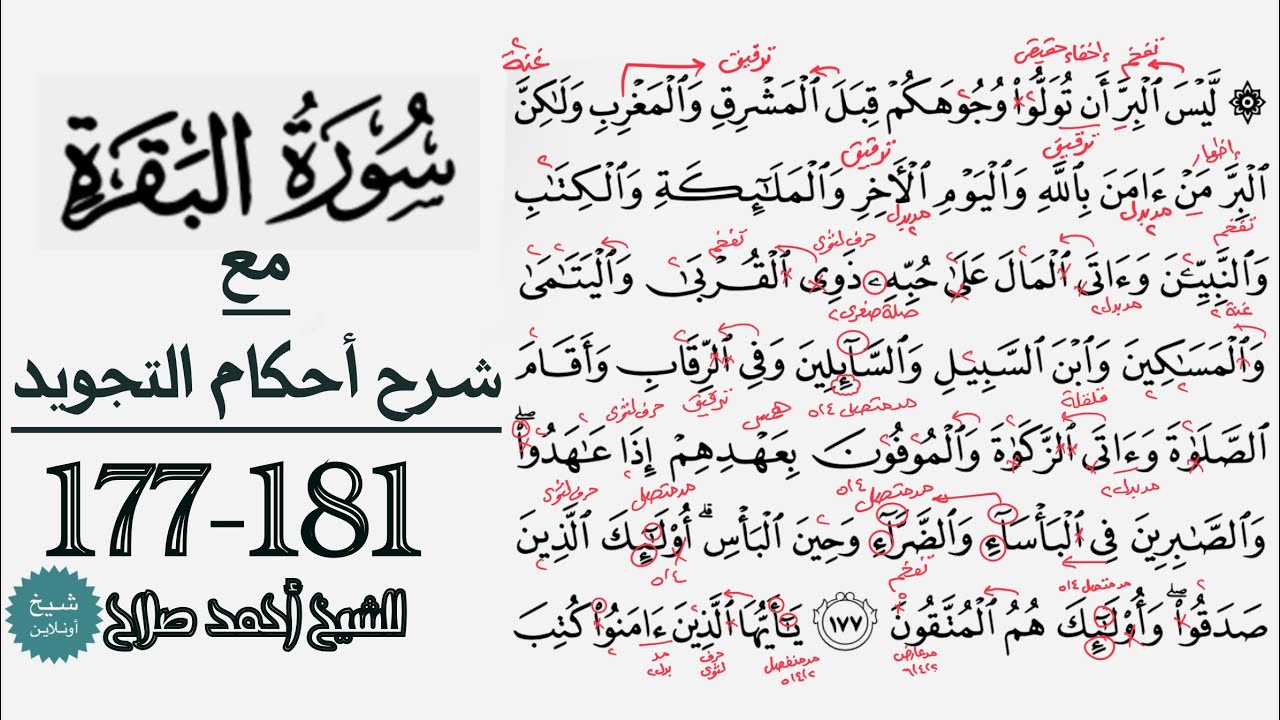 سُورَةُ البَقَرَةِ
مع
شرح أحكام التجويد
177-181
للشيخ أحمد صلاح
شيخ
أونلاين
غنة ترقيق إخفاء حقيقي تفخم
۞ لَّيۡسَ ٱلۡبِرَّ أَن تُوَلُّواْ وُجُوهَكُمۡ قِبَلَ ٱلۡمَشۡرِقِ وَٱلۡمَغۡرِبِ وَلَٰكِنَّ
ترقيق ترقيق إظهار
ٱلۡبِرَّ مَنۡ ءَامَنَ بِٱللَّهِ وَٱلۡيَوۡمِ ٱلۡأٓخِرِ وَٱلۡمَلَٰٓئِكَةِ وَٱلۡكِتَٰبِ
مد بدل ٢ مد بدل ٢
تفخم حرف لثوي تفخم
وَٱلنَّبِيِّـۧنَ وَءَاتَى ٱلۡمَالَ عَلَىٰ حُبِّهِۦ ذَوِي ٱلۡقُرۡبَىٰ وَٱلۡيَتَٰمَىٰ
غنة ٢ مد بدل ٢ صلة صغرى ٢
وَٱلۡمَسَٰكِينَ وَٱبۡنَ ٱلسَّبِيلِ وَٱلسَّآئِلِينَ وَفِي ٱلرِّقَابِ وَأَقَامَ
قلقلة مد متصل ٥١٤ ترقيق همس حرف لثوي
ٱلصَّلَوٰةَ وَءَاتَى ٱلزَّكَوٰةَ وَٱلۡمُوفُونَ بِعَهۡدِهِمۡ إِذَا عَٰهَدُواْۖ
مد بدل ٢ مد متصل ٥١٤ مد متصل حرف لثوي
وَٱلصَّٰبِرِينَ فِي ٱلۡبَأۡسَآءِ وَٱلضَّرَّآءِ وَحِينَ ٱلۡبَأۡسِۗ أُوْلَٰٓئِكَ ٱلَّذِينَ
مد متصل ٥١٤ تفخم ٥١٤
صَدَقُواْۖ وَأُوْلَٰٓئِكَ هُمُ ٱلۡمُتَّقُونَ ١٧٧ يَٰٓأَيُّهَا ٱلَّذِينَ ءَامَنُواْ كُتِبَ
مد عارض ٦١٤١٢ مد منفصل ٥١٤١٢ حرف لثوي مد بدل ٢